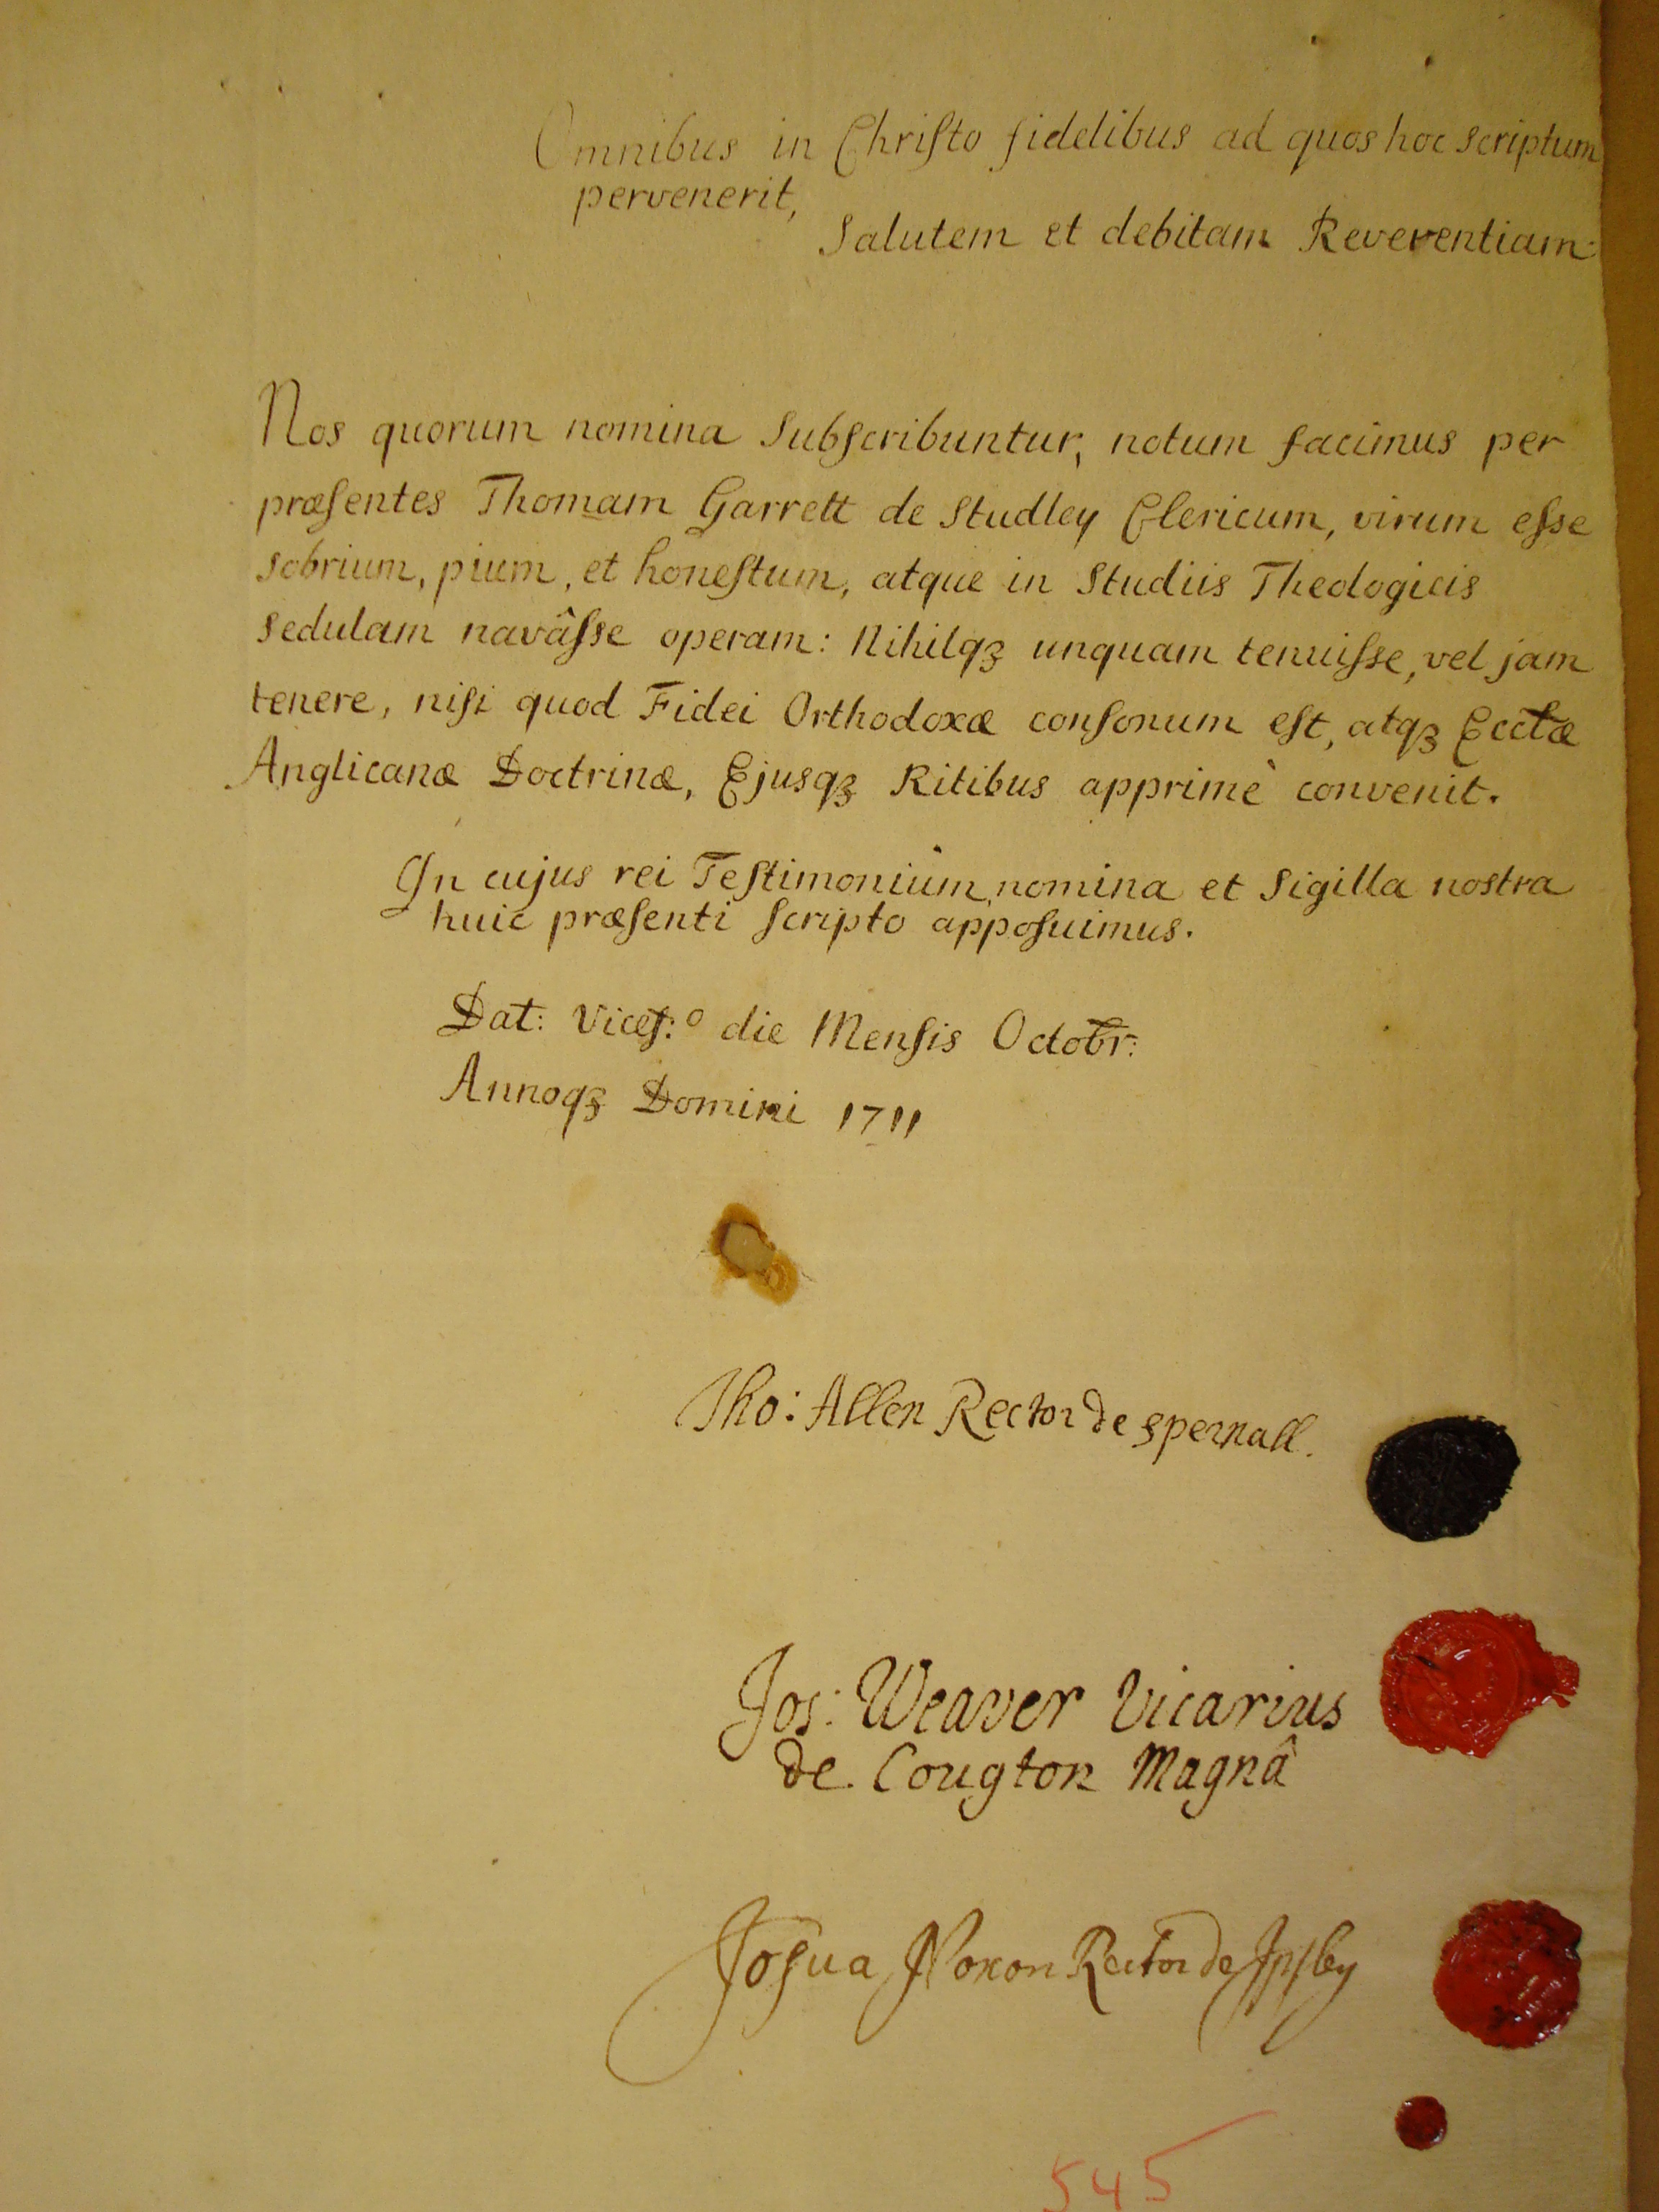 Omnibus in Chriſto fidelibus ad quos hoc scriptum
pervenerit,
Salutem et debitam Reverentiam:
Nos quorum nomina Subſcribuntur, notum facimus per
præſentes Thomam Garrett de Studley Clericum, virum eſse
sobrium, pium, et honeſtum, atque in Studiis Theologicis
sedulam navâſse operam: Nihilqꝫ unquam tenuiſse, vel jam
tenere, niſi quod Fidei Orthodoxæ conſonum eſt, atqꝫ Ecclæ
Anglicanæ Doctrinæ, Ejusqꝫ Ritibus apprimè convenit.
In cujus rei Teſtimonium, nomina et Sigilla nostra
huic præſenti ſcripto appoſuimus.
Dat: Viceſ:º die Menſis Octobr:
Annoqꝫ Domini 1711
Tho: Allen Rector de Spernall.
Jos: Weaver Vicarius
de Cougton Magnâ
Joſua Noxon Rector de Ipſley
545